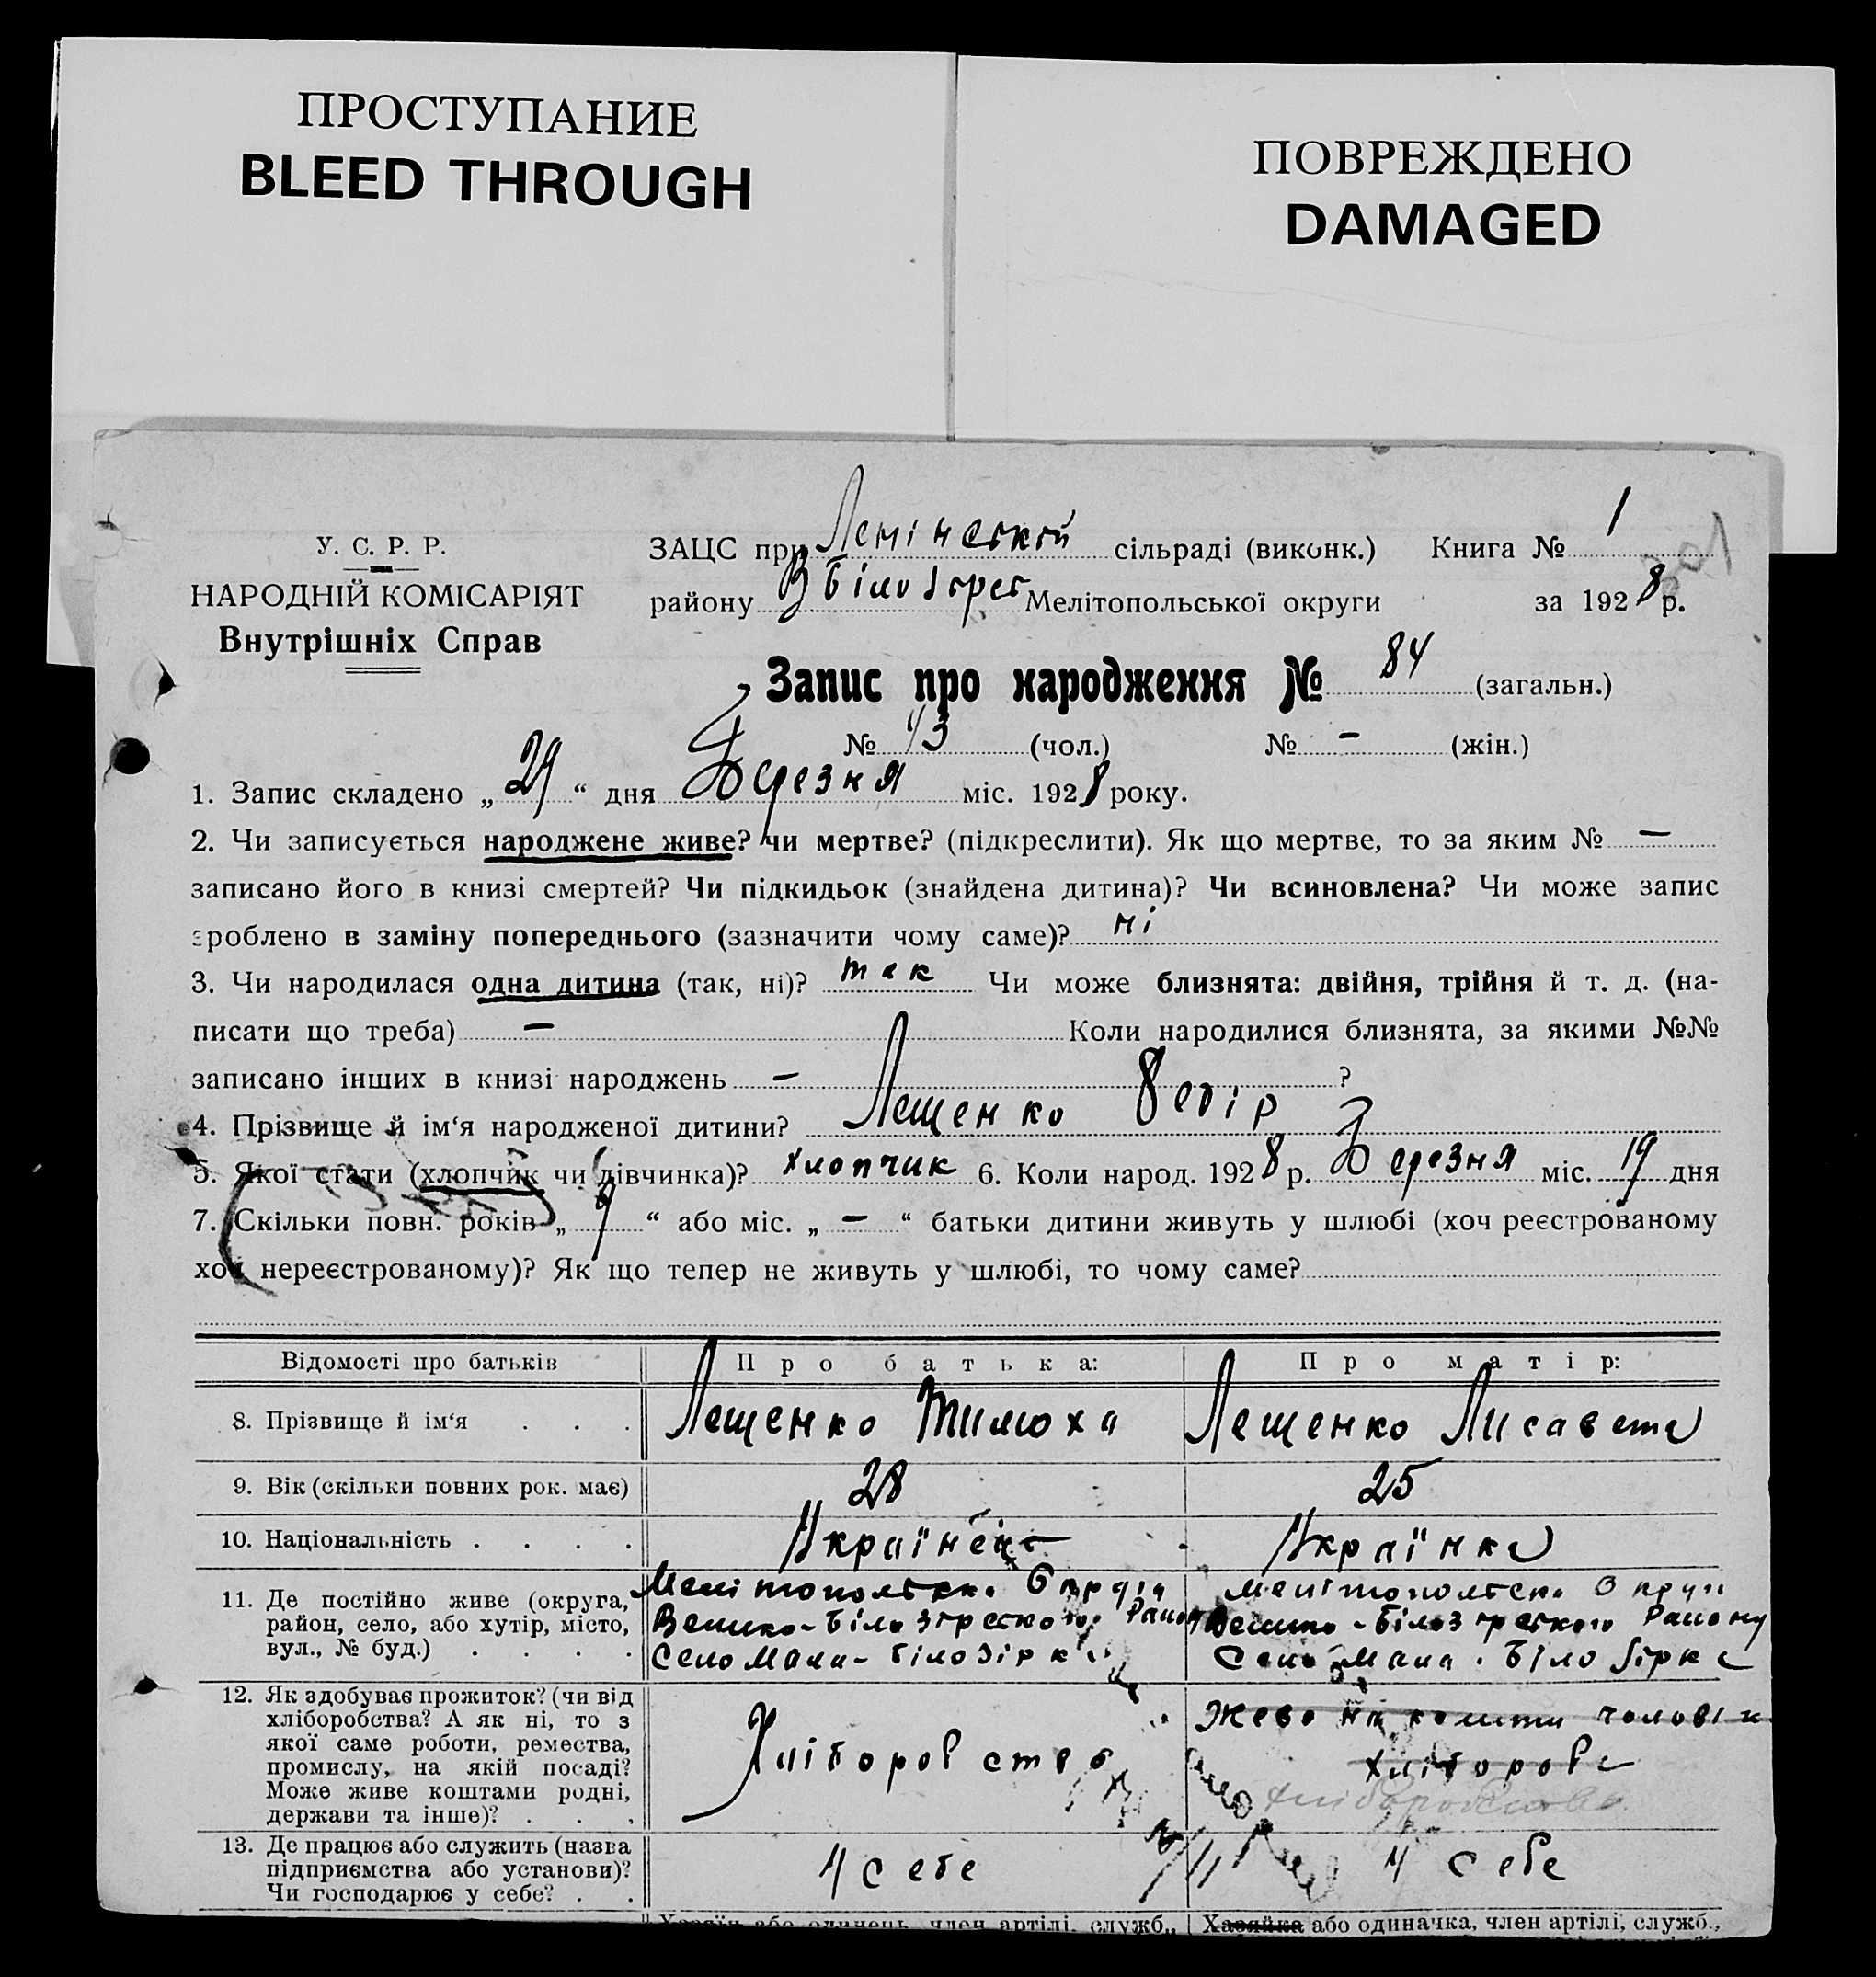 ПРОСТУПАНИЕ
BLEED THROUGH
ПОВРЕЖДЕНО
DAMAGED
У. С. Р. Р.
НАРОДНІЙ КОМІСАРІЯТ
Внутрішніх Справ
ЗАЦС при Ленінській сільраді (виконк.) Книга № 1
району В Білозірсь Мелітопольської округи за 1928 р.
Запис про народження № 84 (загальн.)
№ 43 (чол.) № — (жін.)
1. Запис складено „ 29 “ дня Березня міс. 1928 року.
2. Чи записується народжене живе? чи мертве? (підкреслити). Як що мертве, то за яким № —
записано його в книзі смертей? Чи підкидьок (знайдена дитина)? Чи всиновлена? Чи може запис
зроблено в заміну попереднього (зазначити чому саме)? ні
3. Чи народилася одна дитина (так, ні)? так Чи може близнята: двійня, трійня й т. д. (на-
писати що треба) — Коли народилися близнята, за якими №№
записано інших в книзі народжень — ?
4. Прізвище й ім‘я народженої дитини? Лещенко Федір
5. Якої стати (хлопчик чи дівчинка)? хлопчик 6. Коли народ. 1928 р. Березня міс. 19 дня
7. Скільки повн. років „ 9 “ або міс. „ — “ батьки дитини живуть у шлюбі (хоч реєстрованому
хоч нереєстрованому)? Як що тепер не живуть у шлюбі, то чому саме?
Відомості про батьків Про батька: Про матір:
8. Прізвище й ім‘я . . . Лещенко Тимоха Лещенко Лисавета
9. Вік (скільки повних рок. має) 28 25
10. Національність . . . . Українець Українка
11. Де постійно живе (округа,
район, село, або хутір, місто,
вул., № буд.) . . . .
Мелітопольск. Округи
Велико-Білозірского Району
Село Мала-Білозірка
Мелітопольск. Округи
Велико-Білозірского Району
Село Мала-Білозірка
12. Як здобуває прожиток? (чи від
хліборобства? А як ні, то з
якої саме роботи, ремества,
промислу, на якій посаді?
Може живе коштами родні,
держави та інше)? . . .
Хліборобство
Живе на кошти чоловік
хлібороб
хліборобство
13. Де працює або служить (назва
підприємства або установи)?
Чи господарює у себе? . .
У себе
У себе
Хазяїн або одинець, член артілі, служб., Хазяйка або одиначка, член артілі, служб.,